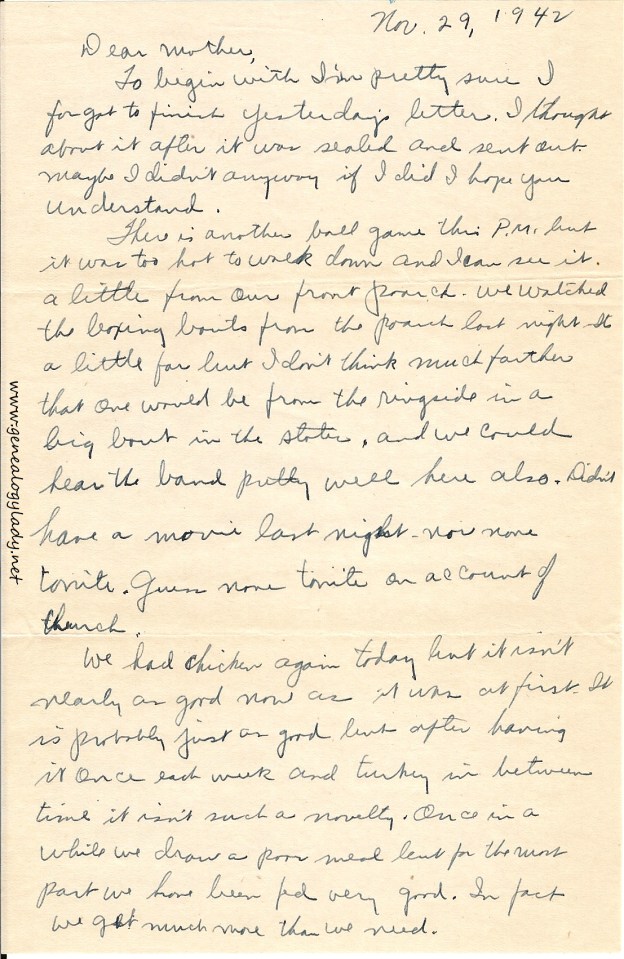 Nov. 29, 1942
Dear Mother,
To begin with I'm pretty sure I
forgot to finish yesterdays letter. I thought
about it after it was sealed and sent out.
maybe I didn't anyway if I did I hope you
understand.
There is another ball game this P.M. but
it was too hot to walk down and I can see it.
a little from our front poarch. We watched
the boxing bouts from the poarch last night. It
a little far but I don't think much farther
that one would be from the ringside in a
big bout in the states, and we could
hear the band pretty well here also. Didn't
have a movie last night - nor none
tonite. Guess none tonite on account of
church.
We had chicken again today but it isn't
nearly as good now as it was at first. It
is probably just as good but after having
it once each week and turkey in between
time it isn't such a novelty. Once in a
while we draw a poor meal but for the most
part we have been fed very good. In fact
we get much more than we need.
www.genealogylady.net